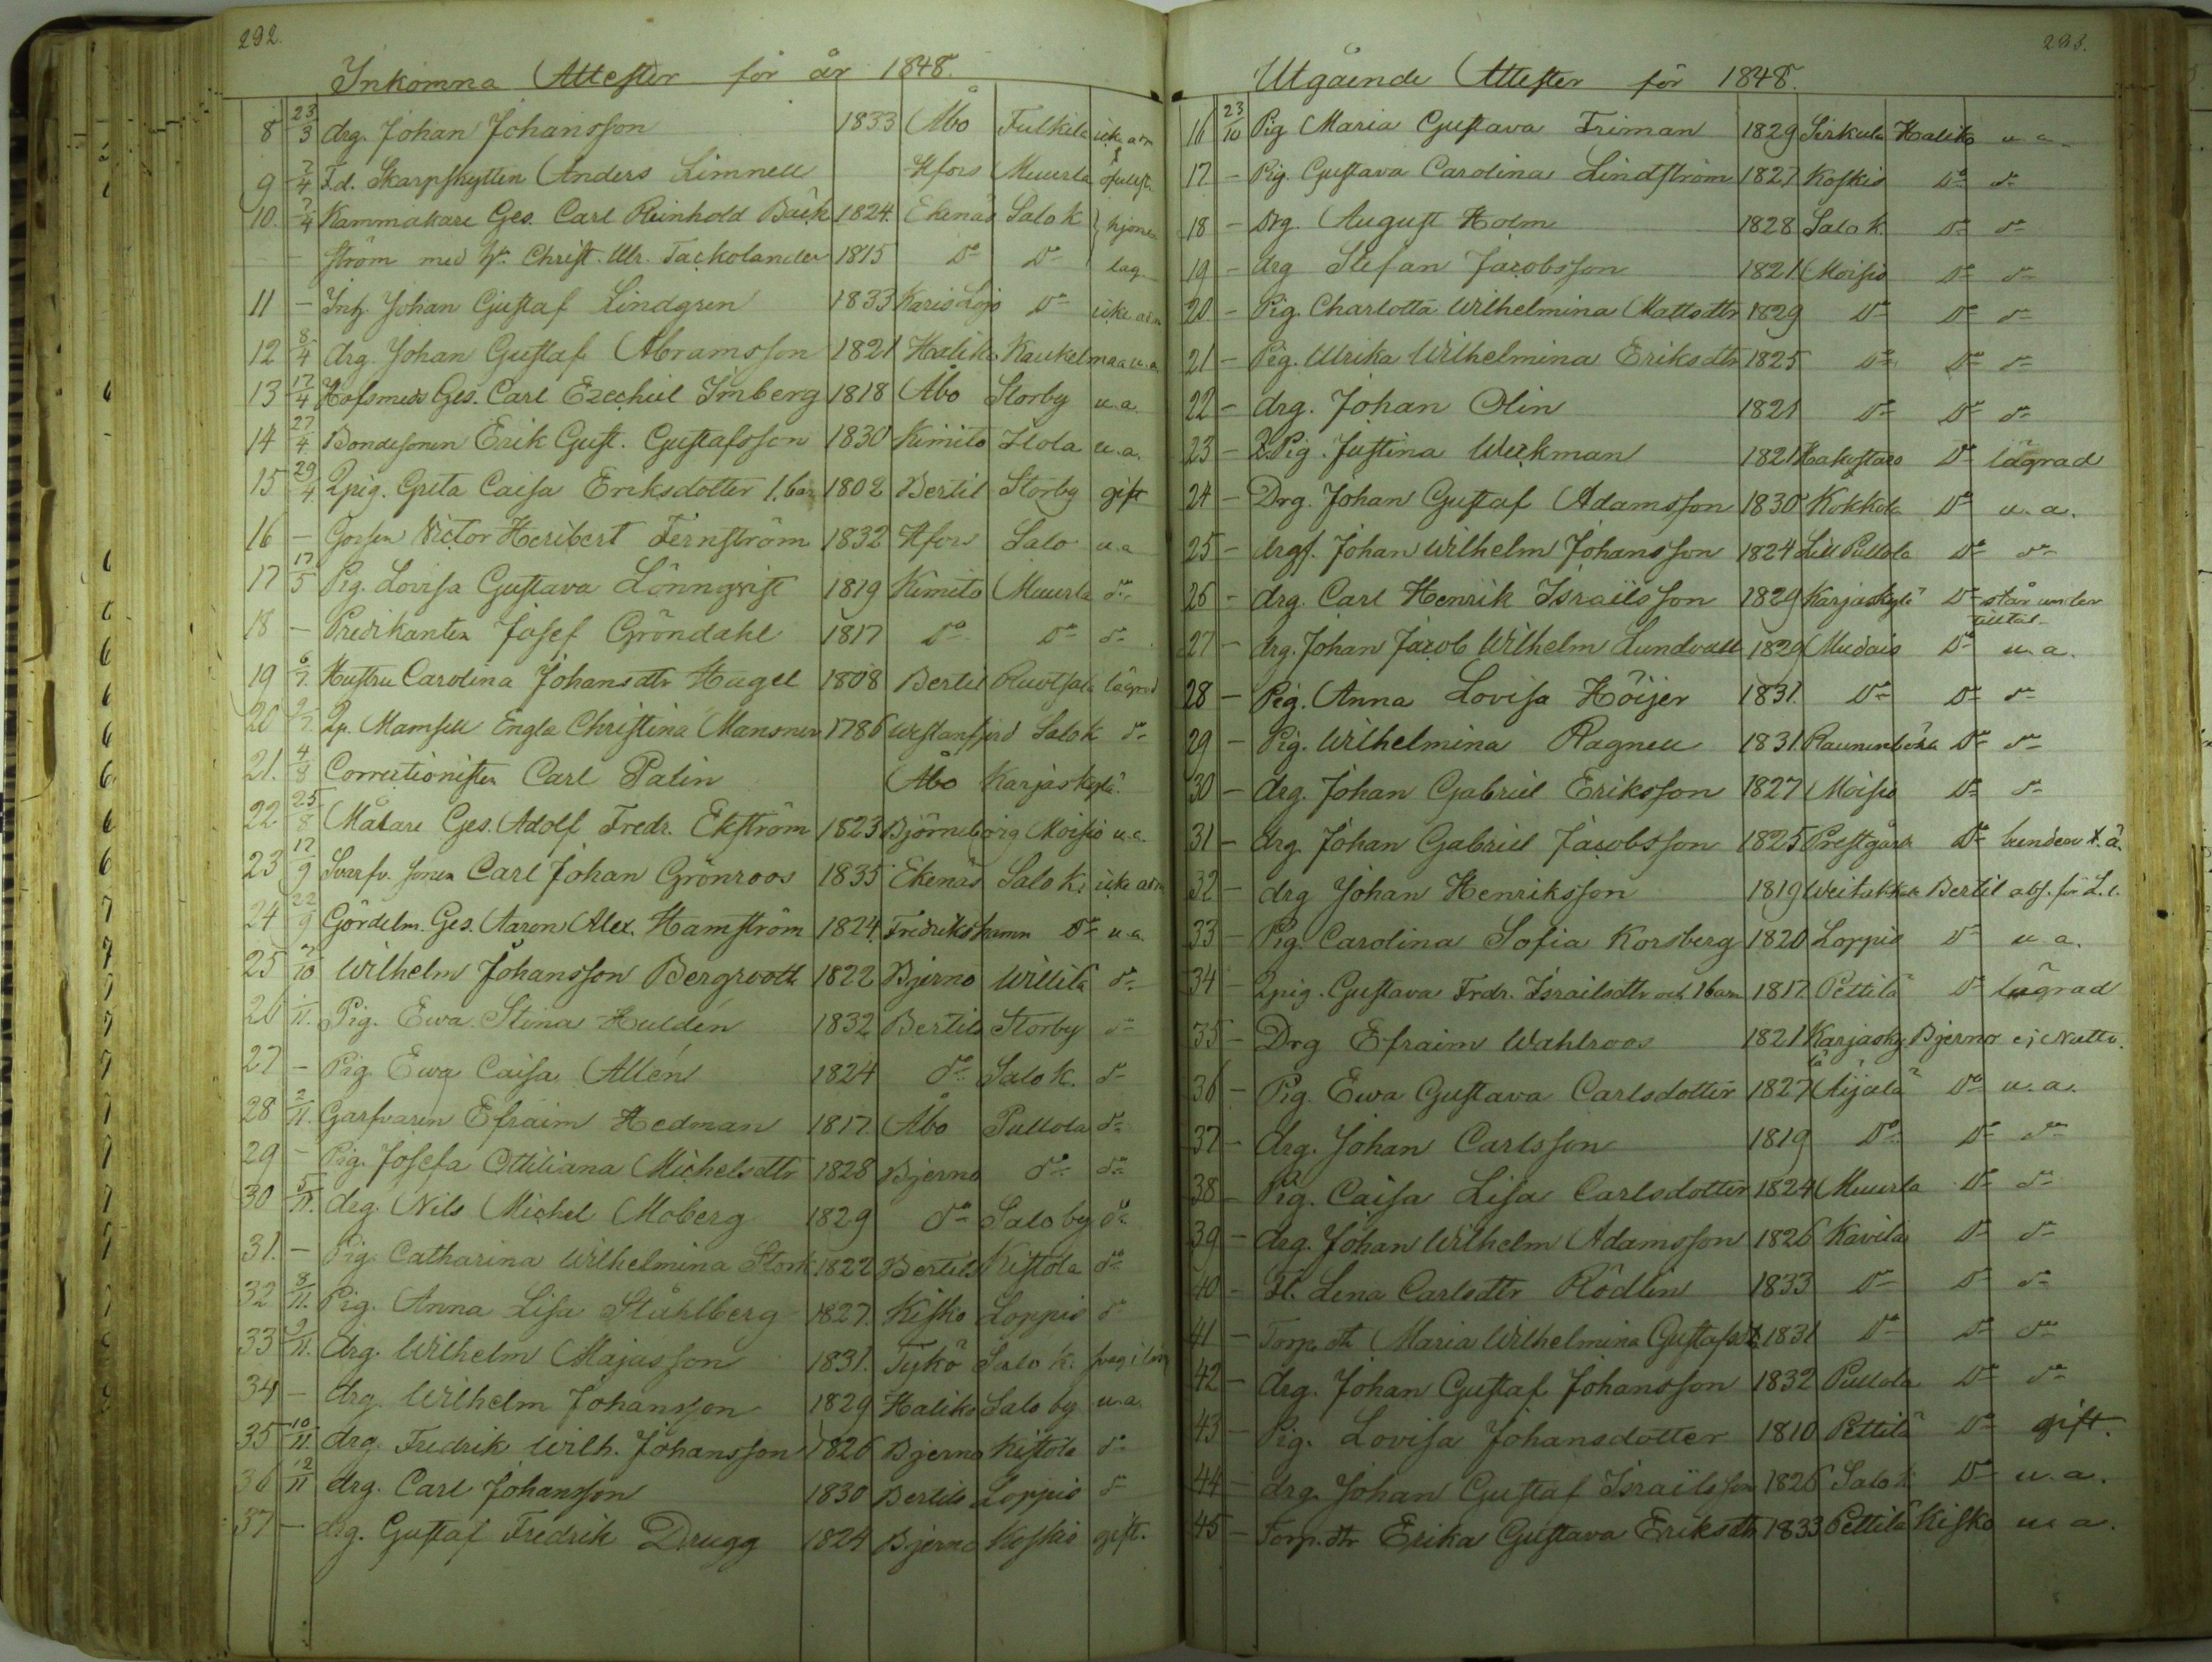 292.
Inkomna Attester för år 1848.
8 23/3 drg. Johan Johansson 1833 Åbo icke adm
9 7/4 F.d. Skarpskytten Anders Limnell Hfors Muurla
10. 7/4 Kammakare Ges. Carl Reinhold Bäck 1824. Ekenäs Salo k hjone
- - ström med h. Christ. Ulr. Tackolander 1815 Do Do lag
11 - Johan Gustaf Lindgren 1833 Karis Lojo Do icke adm
12 8/4 drg. Johan Gustaf Abramsson 1821 Haliko Kaukelmaa u.a.
13 17/4 Hofsmeds Ges. Carl Ezechiel Imberg 1818 Åbo Storby u.a.
14 27/4 Bondesonen Erik Gust. Gustafsson 1830 Kimito u.a.
15 29/4 Qpig. Greta Caisa Eriksdotter 1. bar 1802 Bertil Storby gift
16 - Gossen Victor Heribert Fernström 1832 Hfors Salo u.a
17 17/5 Pig. Lovisa Gustava Lönnqvist 1819 Kimito Muurla do
18 - Predikanten Josef Gröndahl 1817 Do Do do
19 6/7. Hustru Carolina Johansdtr Hagel 1808 Bertil Ruotsala lägrad
20 Qp. Mamsell Engla Christina Mansner 1786 Westanfjerd Salo k do
21. 4/8 Correctionisten Carl Palin Åbo Karjaskylä.
22 25/8 Målare Ges. Adolf Fredr. Ekström 1823 Björneborg Moisio u.a.
23 17/9 Svarfv. sonen Carl Johan Grönroos 1835 Ekenäs Salo k. icke adm
24 22/9 Gördelm. Ges. Aaron Alex. Hamström 1824. Fredrikshamn Do u.a.
25 7/10 Wilhelm Johansson Bergrooth 1822 Bjerno Willilä do
26 Pig. Ewa Stina Huldén 1832 Bertils Storby do
27 - Pig. Ewa Caisa Allén 1824 do Salo k. do
28 2/11. Garfvaren Efraim Hedman 1817. Åbo Pullola do
29 - Pig. Josefa Ottiliana Michelsdtr 1828 Bjerno do do
30 5/11. drg. Nils Michel Moberg 1829 do Salo by do
31. - Pig. Catharina Wilhelmina Stork 1822 Bertils Kistola do
32 8/11. Pig. Anna Lisa Ståhlberg 1827. Kisko Loppis do
33 9/11. drg. Wilhelm Majasson 1831. Tykö Salo k.
34 - drg. Wilhelm Johansson 1829 Haliko Salo by u.a.
35 10/11. drg. Fredrik Wilh. Johansson 1826 Bjerno Kistola do
36 12/11 drg. Carl Johansson 1830 Bertils Loppis do
37 - drg. Gustaf Fredrik Drugg 1824 Bjerno Koskis gift.
293.
Utgående Attester för 1848.
16 23/10 Pig Maria Gustava Friman 1829 Sirkula Haliko u a
17. - Pig. Gustava Carolina Lindström 1827 Koskis Do do
18 - Drg. August Holm 1828 Salo k. Do do
19 - drg Stefan Jacobsson 1821 Moisio Do do
20 - Pig. Charlotta Wilhelmina Mattsdtr 1829 Do Do do
21 - Pig. Ulrika Wilhelmina Eriksdtr 1825 Do Do do
22 - drg. Johan Olin 1821 Do Do do
23 - Q.Pig. Justina Weckman 1821 Do lägrad
24 - Drg. Johan Gustaf Adamsson 1830 Kokkola Do u.a.
25 - Johan Wilhelm Johansson 1824 Lill Pullola Do do
26 - drg. Carl Henrik Israilsson 1829 Karjaskylä Do står under
tilltal
27 - drg. Johan Jacob Wilhelm Lundvall 1829 Mudais Do u.a.
28 - Pig. Anna Lovisa Höijer 1831. Do Do do
29 - Pig. Wilhelmina Ragnell 1831. Do do
30 - drg. Johan Gabriel Eriksson 1827 Moisio Do do
31 - drg. Johan Gabriel Jacobsson 1825 Prestgård Do bunden t. ä.
32 - drg Johan Henriksson 1819 Bertil abs. för L. l.
33 - Pig. Carolina Sofia Korsberg 1820 Loppis Do u.a.
34 - Qpig. Gustava Frdr. Israilsdtr och 1 barn 1817. Pettilä Do lägrad
35 - Drg Efraim Wahlroos 1821 Karjasky Bjerno ej Nattv.
lä
36 - Pig. Ewa Gustava Carlsdotter 1827 Aijälä Do u.a.
37 - drg. Johan Carlsson 1819 Do Do do
38 - Pig. Caisa Lisa Carlsdotter 1824 Muurla Do do
39 - drg. Johan Wilhelm Adamsson 1826 Kavila Do do
40 - Fl. Lena Carlsdtr Rödlin 1833 Do Do do
41 - Torp. dtr Maria Wilhelmina Gustafsdt 1831 Do Do do
42 - drg. Johan Gustaf Johansson 1832 Pullola Do do
43 - Pig. Lovisa Johansdotter 1810 Pettilä Do gift.
44 - drg. Johan Gustaf Israilsson 1826 Salo k Do u.a.
45 - Torp. dtr Erika Gustava Eriksdtr 1833 Pettilä Kisko u a.